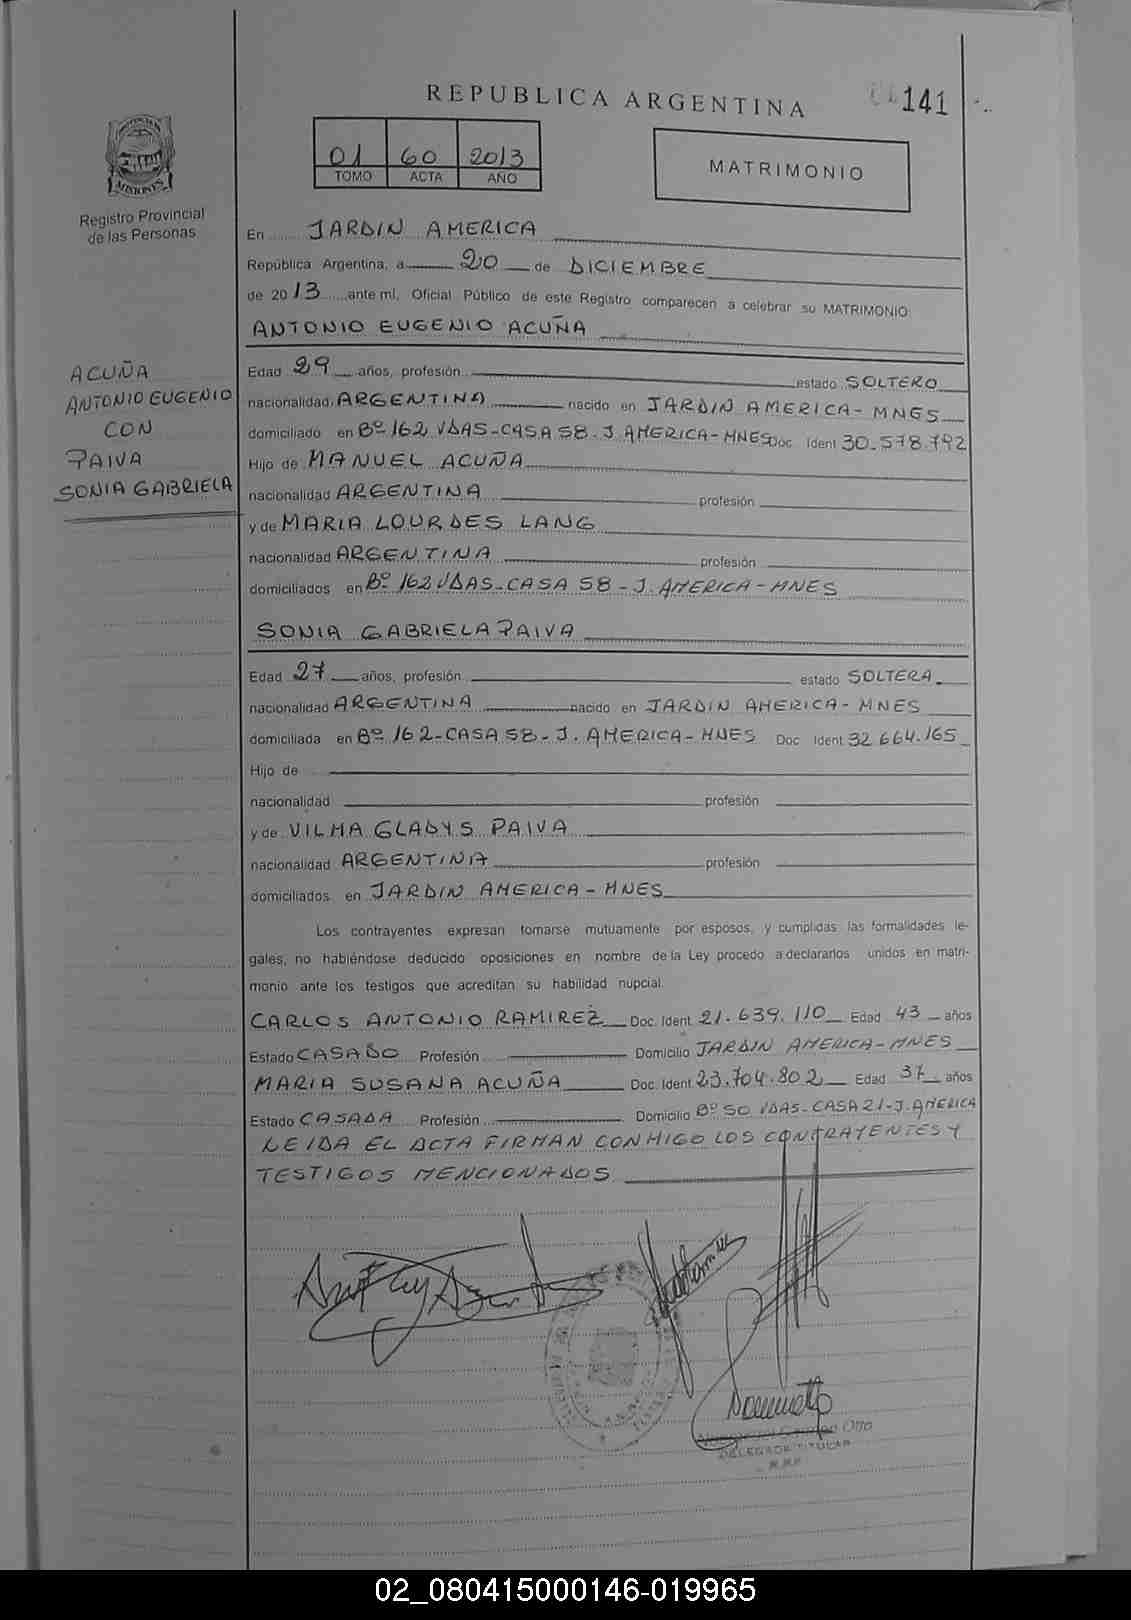 REPUBLICA ARGENTINA
141
01 60 2013
TOMO ACTA AÑO
MATRIMONIO
PROVINCIA DE
MISIONES
Registro Provincial
de las Personas
ACUÑA
ANTONIO EUGENIO
CON
PAIVA
SONIA GABRIELA
En JARDIN AMERICA
República Argentina, a 20 de DICIEMBRE
de 2013 ante mí, Oficial Público de este Registro comparecen a celebrar su MATRIMONIO:
ANTONIO EUGENIO ACUÑA
Edad 29 años, profesión estado SOLTERO
nacionalidad ARGENTINA nacido en JARDIN AMERICA - MNES
domiciliado en Bº 162 VDAS - CASA 58 - J. AMERICA - MNES Doc. Ident 30.578.792
Hijo de MANUEL ACUÑA
nacionalidad ARGENTINA profesión
y de MARIA LOURDES LANG
nacionalidad ARGENTINA profesión
domiciliados en Bº 162 VDAS - CASA 58 - J. AMERICA - MNES
SONIA GABRIELA PAIVA
Edad 27 años, profesión estado SOLTERA
nacionalidad ARGENTINA nacido en JARDIN AMERICA - MNES
domiciliada en Bº 162 - CASA 58 - J. AMERICA - MNES Doc Ident 32 664.165
Hijo de
nacionalidad profesión
y de VILMA GLADYS PAIVA
nacionalidad ARGENTINA profesión
domiciliados en JARDIN AMERICA - MNES
Los contrayentes expresan tomarse mutuamente por esposos, y cumplidas las formalidades le-
gales, no habiéndose deducido oposiciones en nombre de la Ley procedo a declararlos unidos en matri-
monio ante los testigos que acreditan su habilidad nupcial.
CARLOS ANTONIO RAMIREZ Doc. Ident 21.639.110 Edad 43 años
Estado CASADO Profesión Domicilio JARDIN AMERICA - MNES
MARIA SUSANA ACUÑA Doc. Ident. 23.704.802 Edad 37 años
Estado CASADA Profesión Domicilio Bº 50 VDAS - CASA 21 - J. AMERICA
LEIDA EL ACTA FIRMAN CONMIGO LOS CONTRAYENTES Y
TESTIGOS MENCIONADOS
Otto
DELEGADA TITULAR
02_080415000146-019965